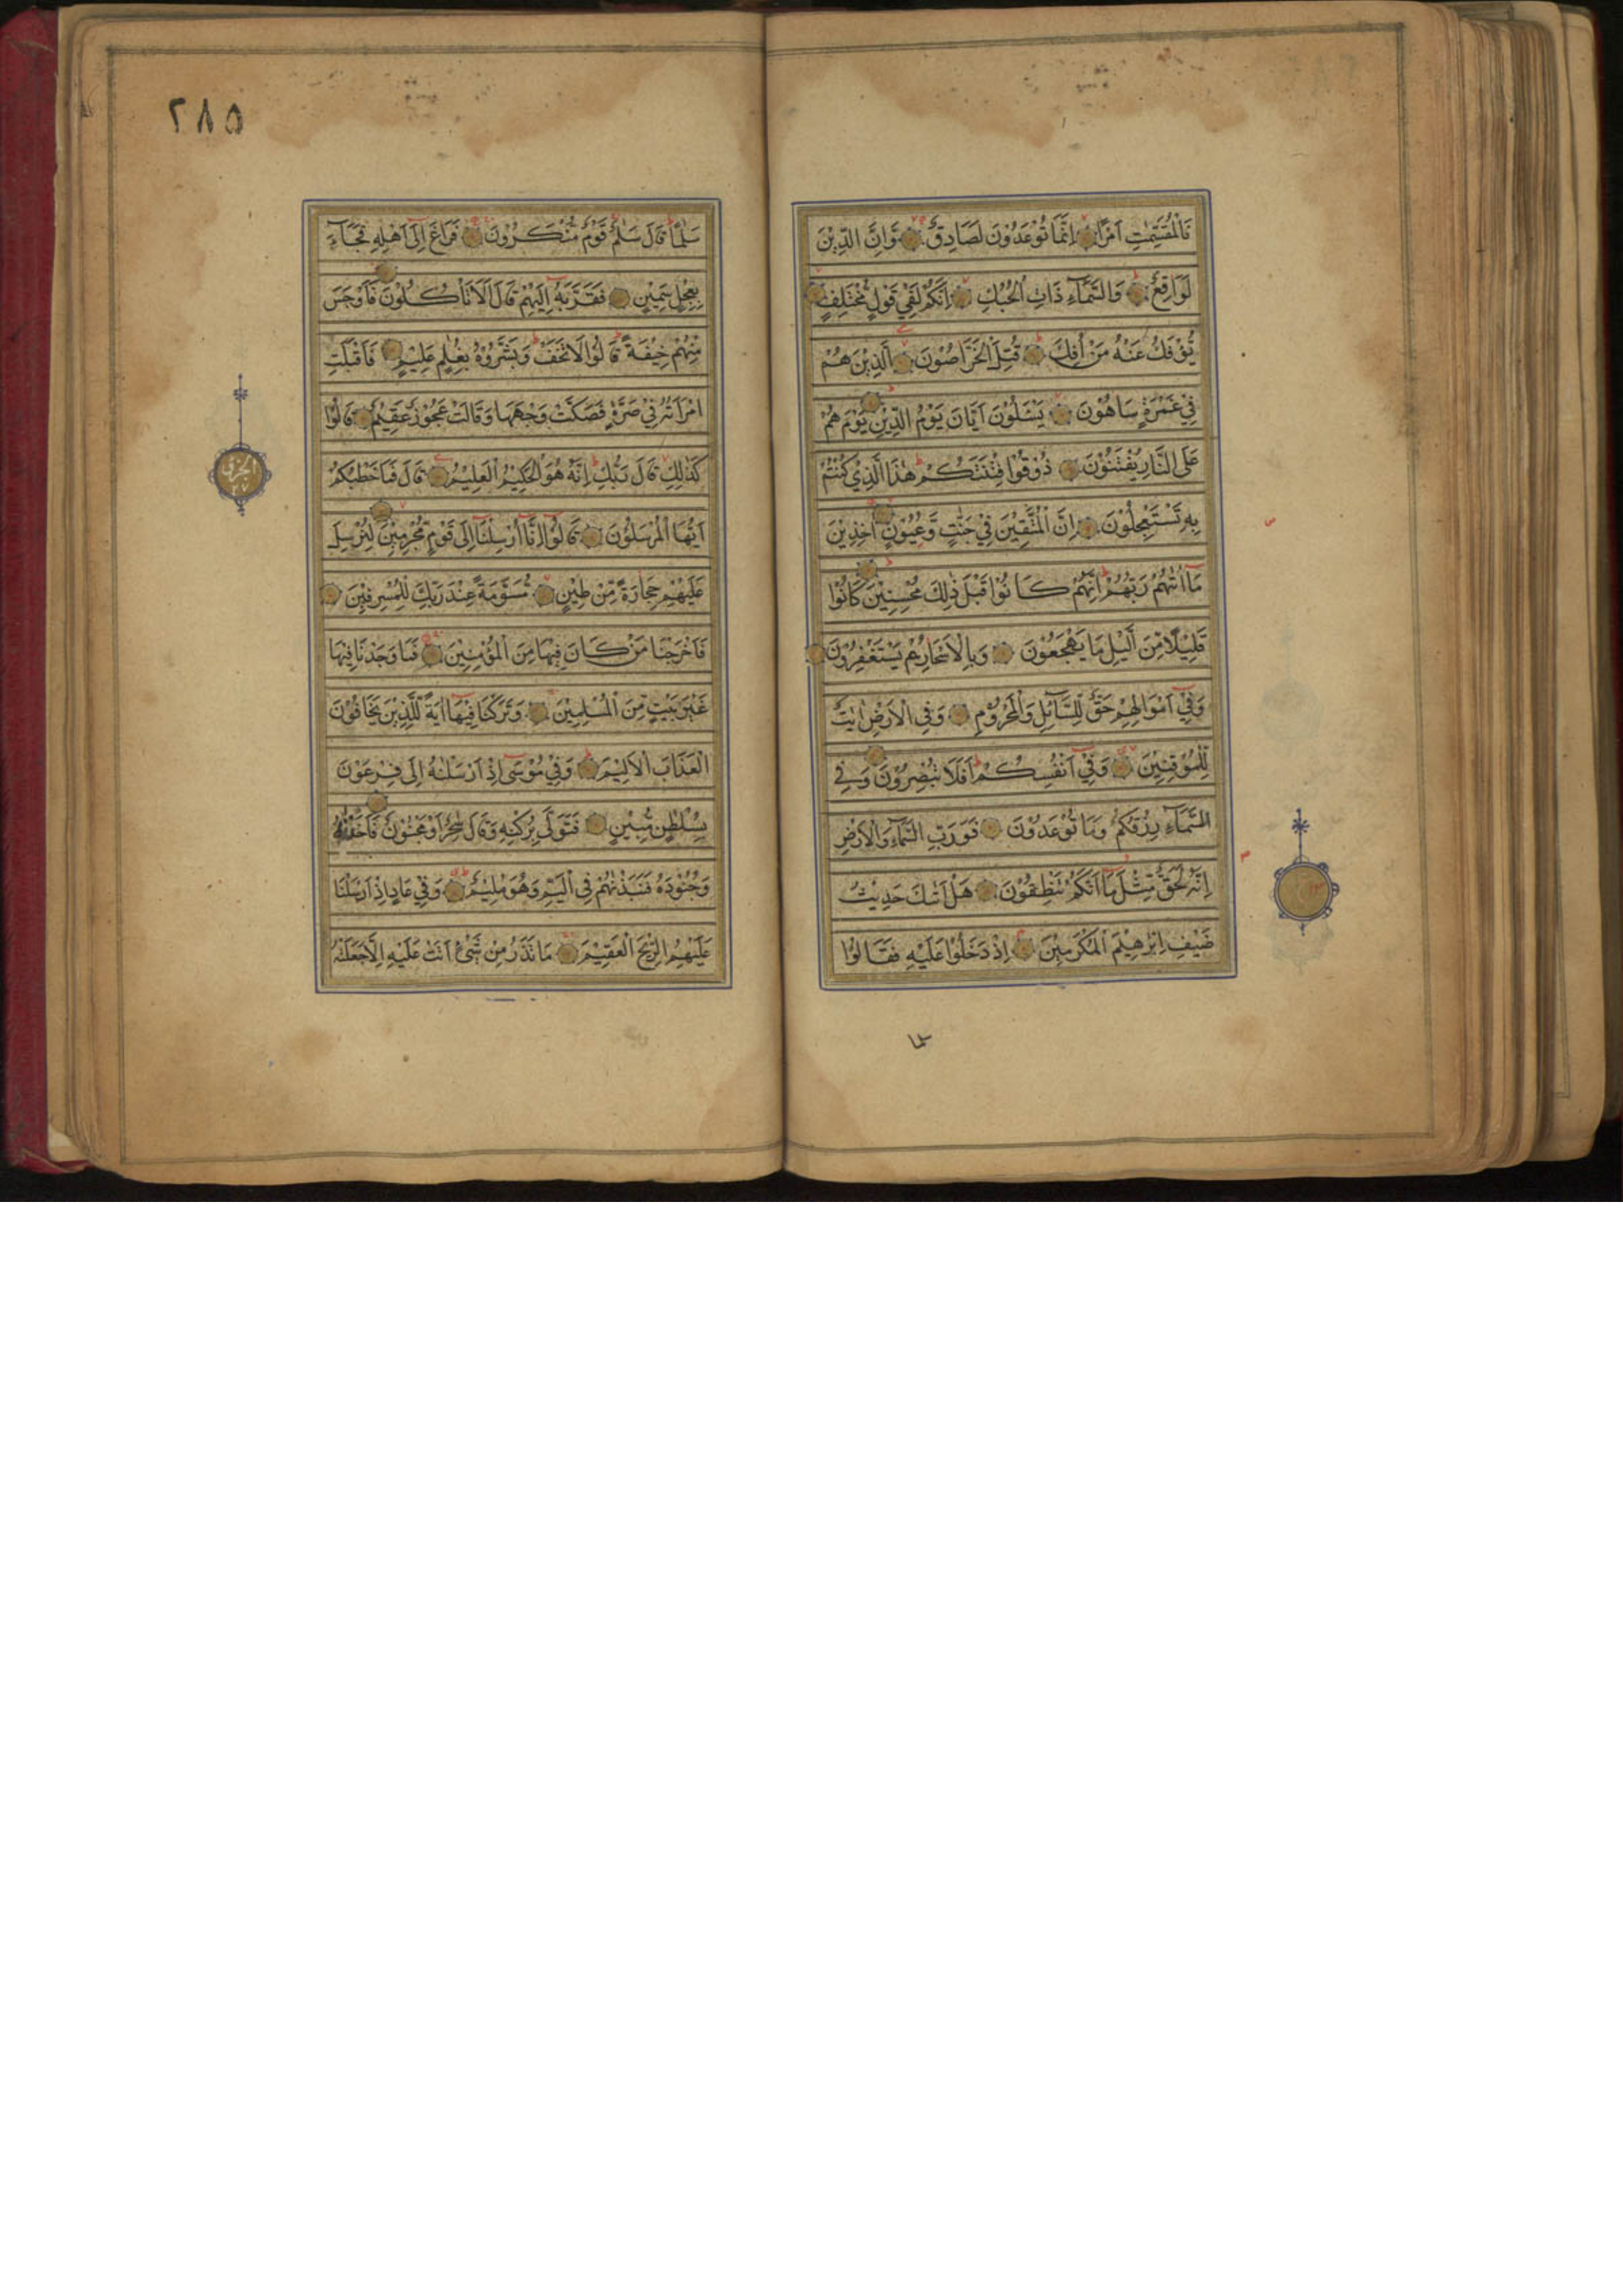 فَالْمُقَسِّمٰتِ اَمْرًا اِنَّمَا تُوْعَدُوْنَ لَصَادِقٌ وَّاِنَّ الدِّيْنَ
لَوَاقِعٌ وَالسَّمَآءِ ذَاتِ الْحُبُكِ اِنَّكُمْ لَفِيْ قَوْلٍ مُّخْتَلِفٍ
يُّؤْفَكُ عَنْهُ مَنْ اُفِكَ قُتِلَ الْخَرّٰصُوْنَ الَّذِيْنَ هُمْ
فِيْ غَمْرَةٍ سَاهُوْنَ يَسْئَلُوْنَ اَيَّانَ يَوْمُ الدِّيْنِ يَوْمَ هُمْ
عَلَى النَّارِ يُفْتَنُوْنَ ذُوْقُوْا فِتْنَتَكُمْ هٰذَا الَّذِيْ كُنْتُمْ
بِهِ تَسْتَعْجِلُوْنَ اِنَّ الْمُتَّقِيْنَ فِيْ جَنّٰتٍ وَّعُيُوْنٍ اٰخِذِيْنَ
مَا اٰتٰىهُمْ رَبُّهُمْ اِنَّهُمْ كَانُوْا قَبْلَ ذٰلِكَ مُحْسِنِيْنَ كَانُوْا
قَلِيْلًا مِّنَ الَّيْلِ مَا يَهْجَعُوْنَ وَبِالْاَسْحَارِ هُمْ يَسْتَغْفِرُوْنَ
وَفِيْ اَمْوَالِهِمْ حَقٌّ لِّلسَّآئِلِ وَالْمَحْرُوْمِ وَفِي الْاَرْضِ اٰيٰتٌ
لِّلْمُوْقِنِيْنَ وَفِيْ اَنْفُسِكُمْ اَفَلَا تُبْصِرُوْنَ وَفِي
السَّمَآءِ رِزْقُكُمْ وَمَا تُوْعَدُوْنَ فَوَرَبِّ السَّمَآءِ وَالْاَرْضِ
اِنَّهُ لَحَقٌّ مِّثْلَ مَا اَنَّكُمْ تَنْطِقُوْنَ هَلْ اَتٰىكَ حَدِيْثُ
ضَيْفِ اِبْرٰهِيْمَ الْمُكْرَمِيْنَ اِذْ دَخَلُوْا عَلَيْهِ فَقَالُوْا
٢٨٥
سَلٰمًا قَالَ سَلٰمٌ قَوْمٌ مُّنْكَرُوْنَ فَرَاغَ اِلٰى اَهْلِهِ فَجَآءَ
بِعِجْلٍ سَمِيْنٍ فَقَرَّبَهُ اِلَيْهِمْ قَالَ اَلَا تَاْكُلُوْنَ فَاَوْجَسَ
مِنْهُمْ خِيْفَةً قَالُوْا لَا تَخَفْ وَبَشَّرُوْهُ بِغُلٰمٍ عَلِيْمٍ فَاَقْبَلَتِ
امْرَاَتُهُ فِيْ صَرَّةٍ فَصَكَّتْ وَجْهَهَا وَقَالَتْ عَجُوْزٌ عَقِيْمٌ قَالُوْا
كَذٰلِكِ قَالَ رَبُّكِ اِنَّهُ هُوَ الْحَكِيْمُ الْعَلِيْمُ قَالَ فَمَا خَطْبُكُمْ
اَيُّهَا الْمُرْسَلُوْنَ قَالُوْا اِنَّا اُرْسِلْنَا اِلٰى قَوْمٍ مُّجْرِمِيْنَ لِنُرْسِلَ
عَلَيْهِمْ حِجَارَةً مِّنْ طِيْنٍ مُّسَوَّمَةً عِنْدَ رَبِّكَ لِلْمُسْرِفِيْنَ
فَاَخْرَجْنَا مَنْ كَانَ فِيْهَا مِنَ الْمُؤْمِنِيْنَ فَمَا وَجَدْنَا فِيْهَا
غَيْرَ بَيْتٍ مِّنَ الْمُسْلِمِيْنَ وَتَرَكْنَا فِيْهَا اٰيَةً لِّلَّذِيْنَ يَخَافُوْنَ
الْعَذَابَ الْاَلِيْمَ وَفِيْ مُوْسٰى اِذْ اَرْسَلْنٰهُ اِلٰى فِرْعَوْنَ
بِسُلْطٰنٍ مُّبِيْنٍ فَتَوَلّٰى بِرُكْنِهِ وَقَالَ سٰحِرٌ اَوْ مَجْنُوْنٌ فَاَخَذْنٰهُ
وَجُنُوْدَهُ فَنَبَذْنٰهُمْ فِي الْيَمِّ وَهُوَ مُلِيْمٌ وَفِيْ عَادٍ اِذْ اَرْسَلْنَا
عَلَيْهِمُ الرِّيْحَ الْعَقِيْمَ مَا تَذَرُ مِنْ شَيْءٍ اَتَتْ عَلَيْهِ اِلَّا جَعَلَتْهُ